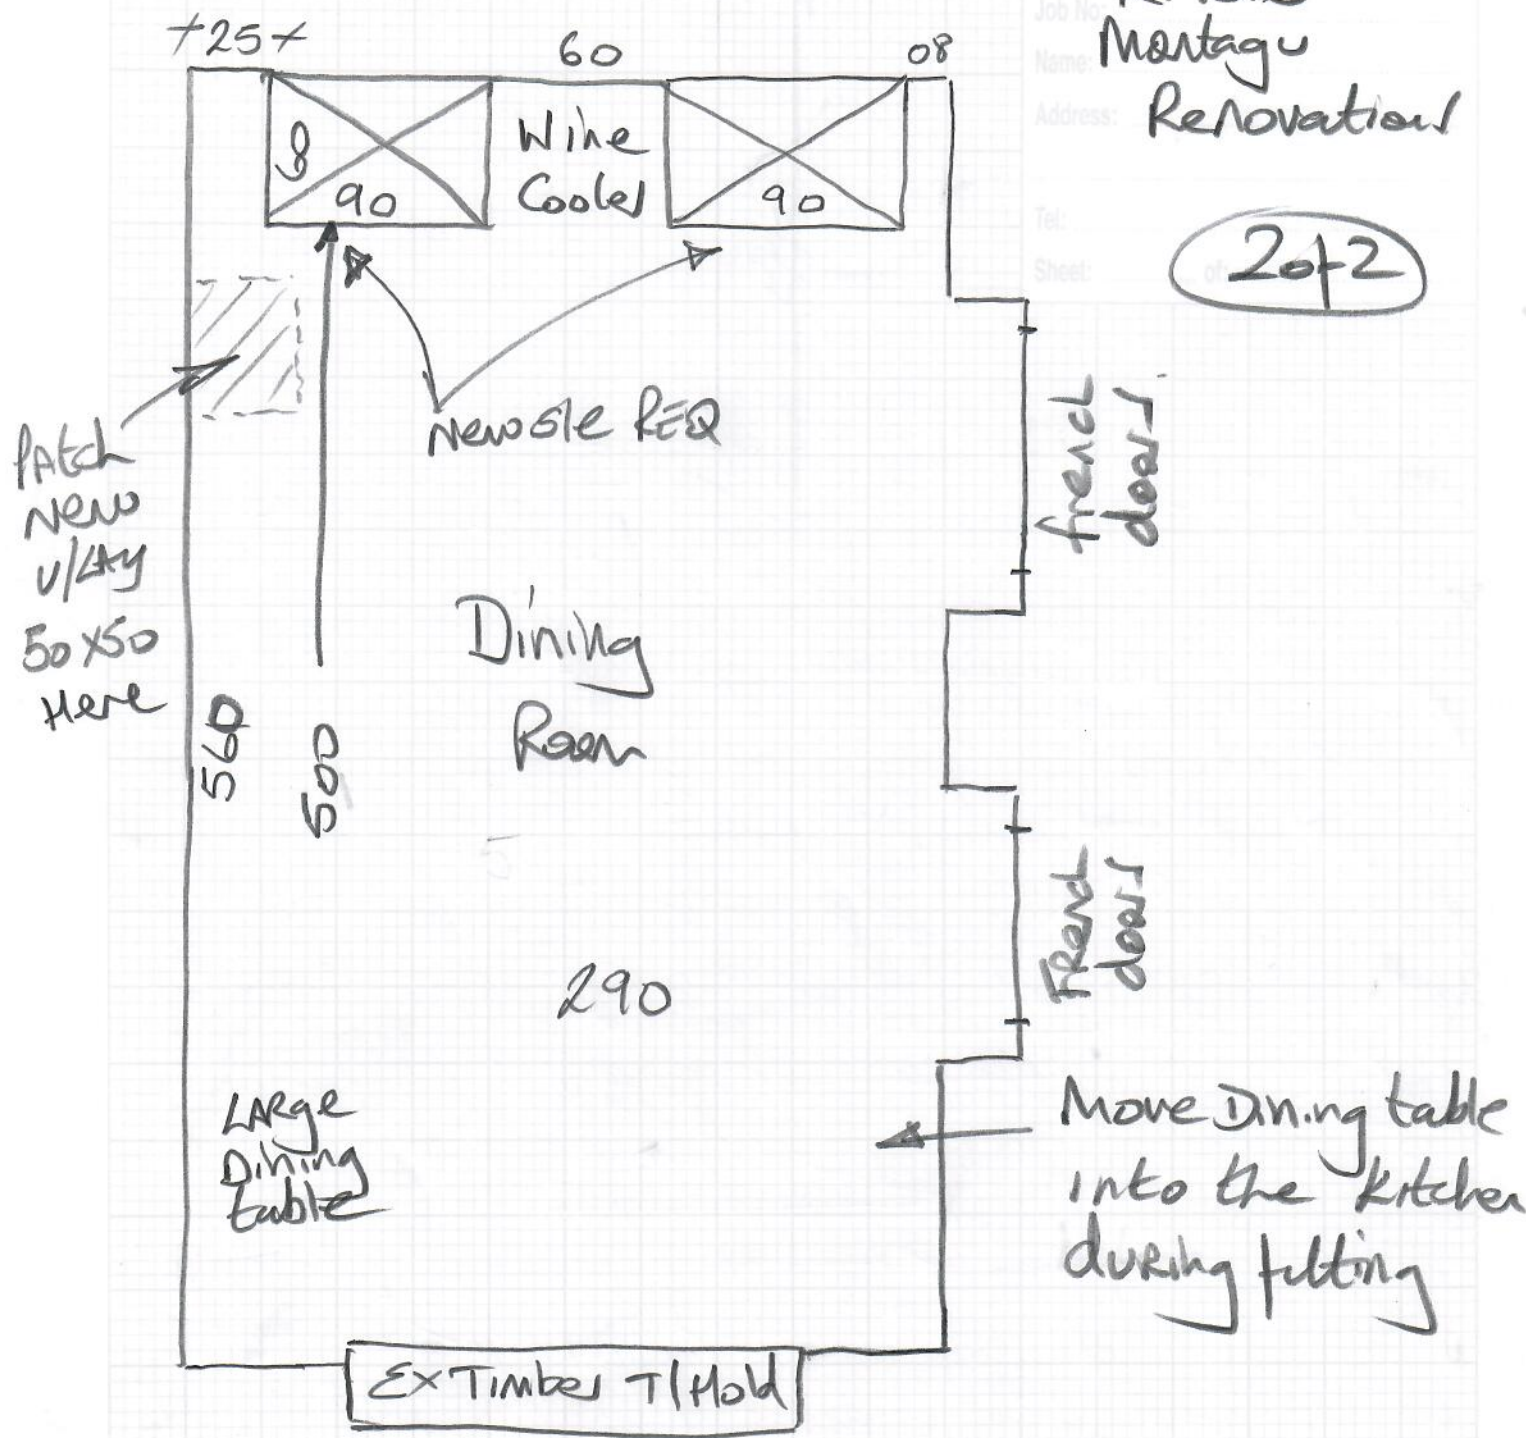 Job No:
Name: Montagu
Address: Renovations
Tel:
Sheet: of:
2 of 2
+25+
60
08
60
90
Wine
Cooler
90
New Gle REQ
PAtch
New
U/LAY
50x50
Here
560
500
Dining
Room
french
doors
FRench
doors
290
LARge
Dining
table
Move Dining table
into the Kitchen
during fitting
Ex Timber T/Hold